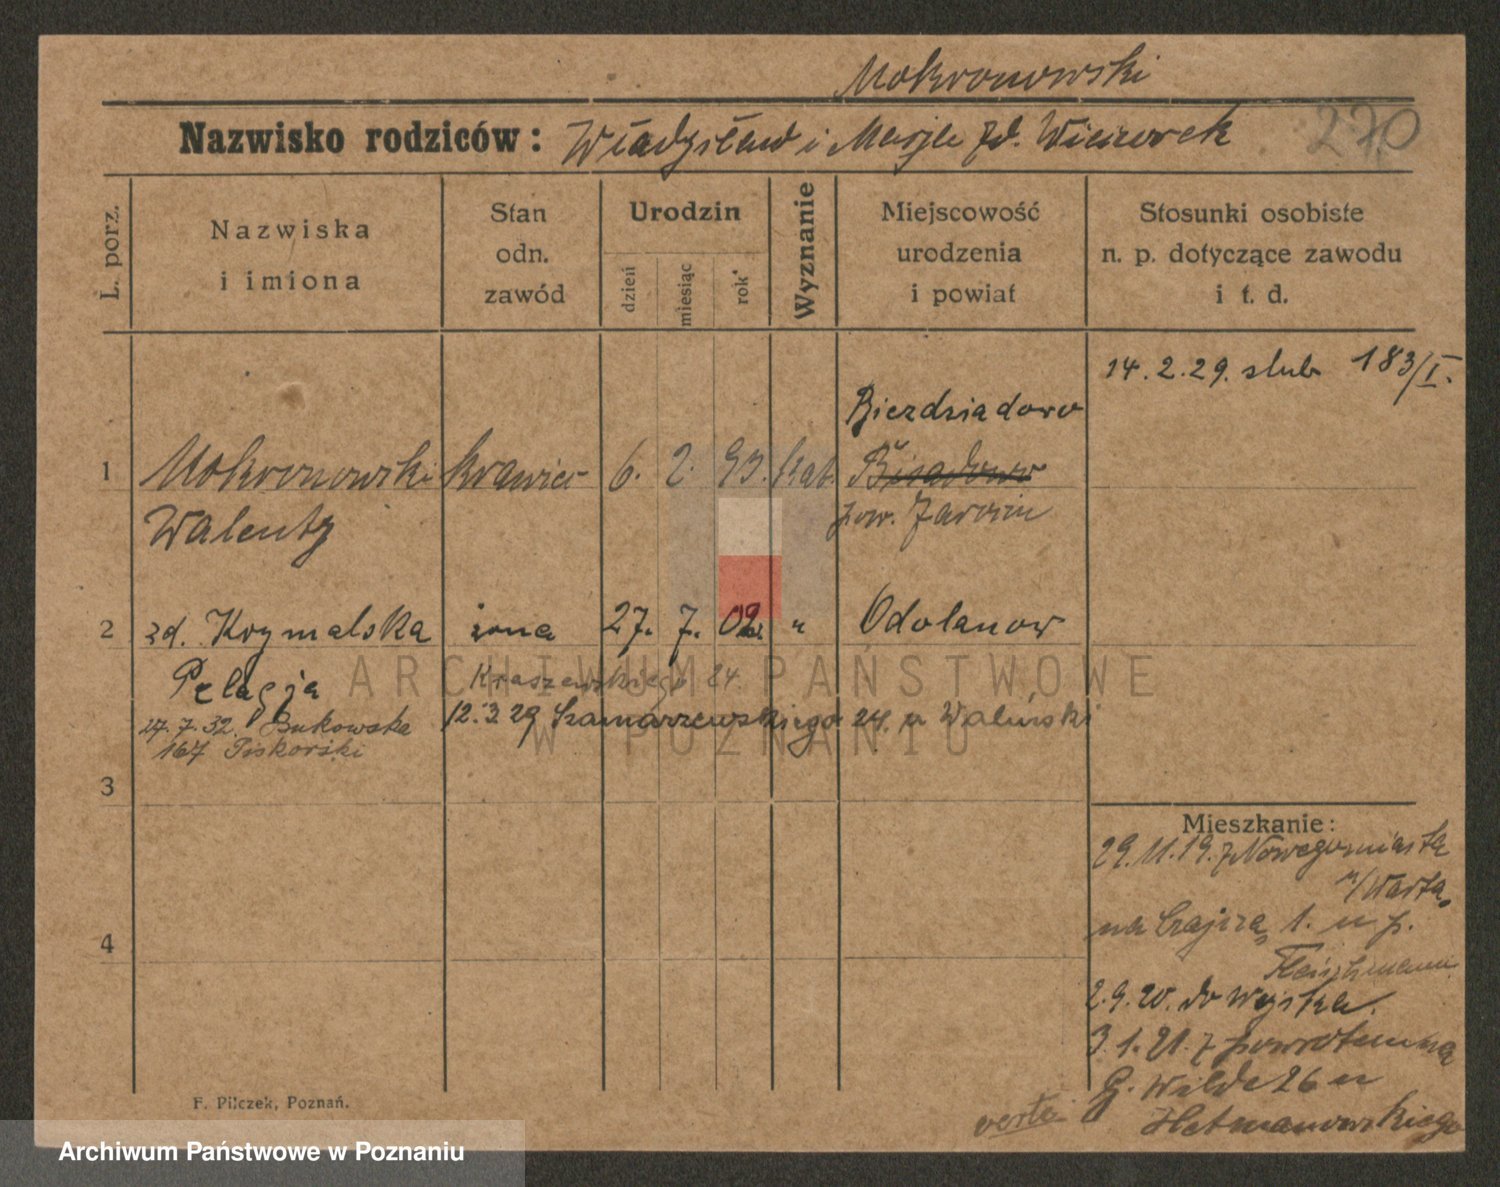 Mokronowski
Nazwisko rodziców: Władysław i Marja zd. Wieczorek 270
L. porz.
Nazwiska i imiona
Stan odn. zawód
Urodzin
dzień
miesiąc
rok
Wyznanie
Miejscowość urodzenia i powiat
Stosunki osobiste n. p. dotyczące zawodu i t. d.
14. 2. 29. slub 183/I.
Biezdziadowo
1 Mokronowski krawiec 6. 2. 93. kat.
Walenty pow. Jarocin
2 zd. Krymalska żona 27. 7. 02. " Odolanow
Pelagja Kraszewskiego 24
12.3.29 Szamarzewskiego 24. u Waliński
27. 7. 32. Bukowska
167 Piskorski
3
4
Mieszkanie:
29. 11. 19. z Nowegomiasta
n/Wartą
na Czajczą 1. u p.
2. 9. 20. do wojska.
3. 1. 21. z powrotem na
G. Wilda 26 u
Hetmanowskiego
verte
F. Pilczek, Poznań.
ARCHIWUM PAŃSTWOWE
W POZNANIU
Archiwum Państwowe w Poznaniu